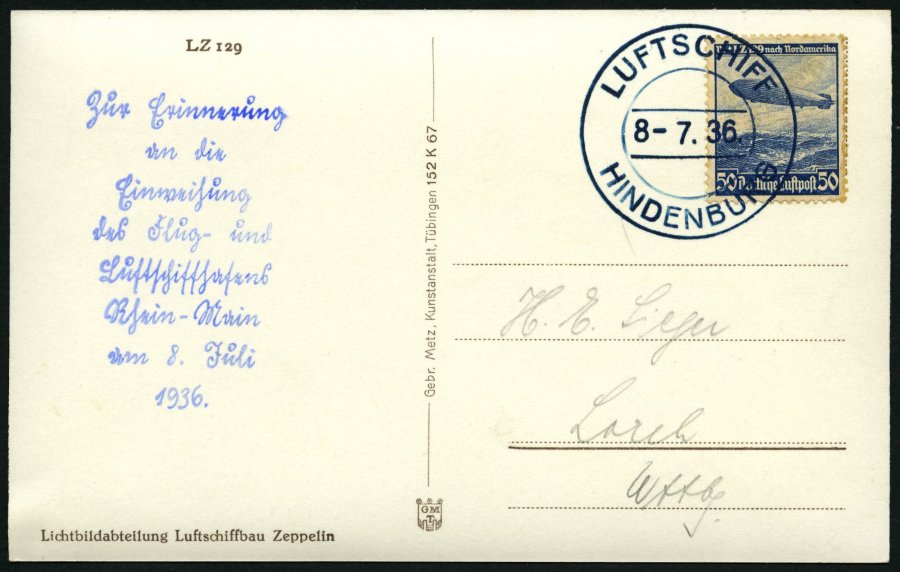 LZ 129
Zur Erinnerung
an die
Einweihung
des Flug- und
Luftschiffhafens
Rhein-Main
am 8. Juli
1936.
Lichtbildabteilung Luftschiffbau Zeppelin
Gebr. Metz, Kunstanstalt, Tübingen 152 K 67
GM
T
LUFTSCHIFF
8-7.36.
HINDENBURG
LZ 129 nach Nordamerika
50 Deutsche Luftpost 50
H. E. Sieger
Lorch
Wttbg